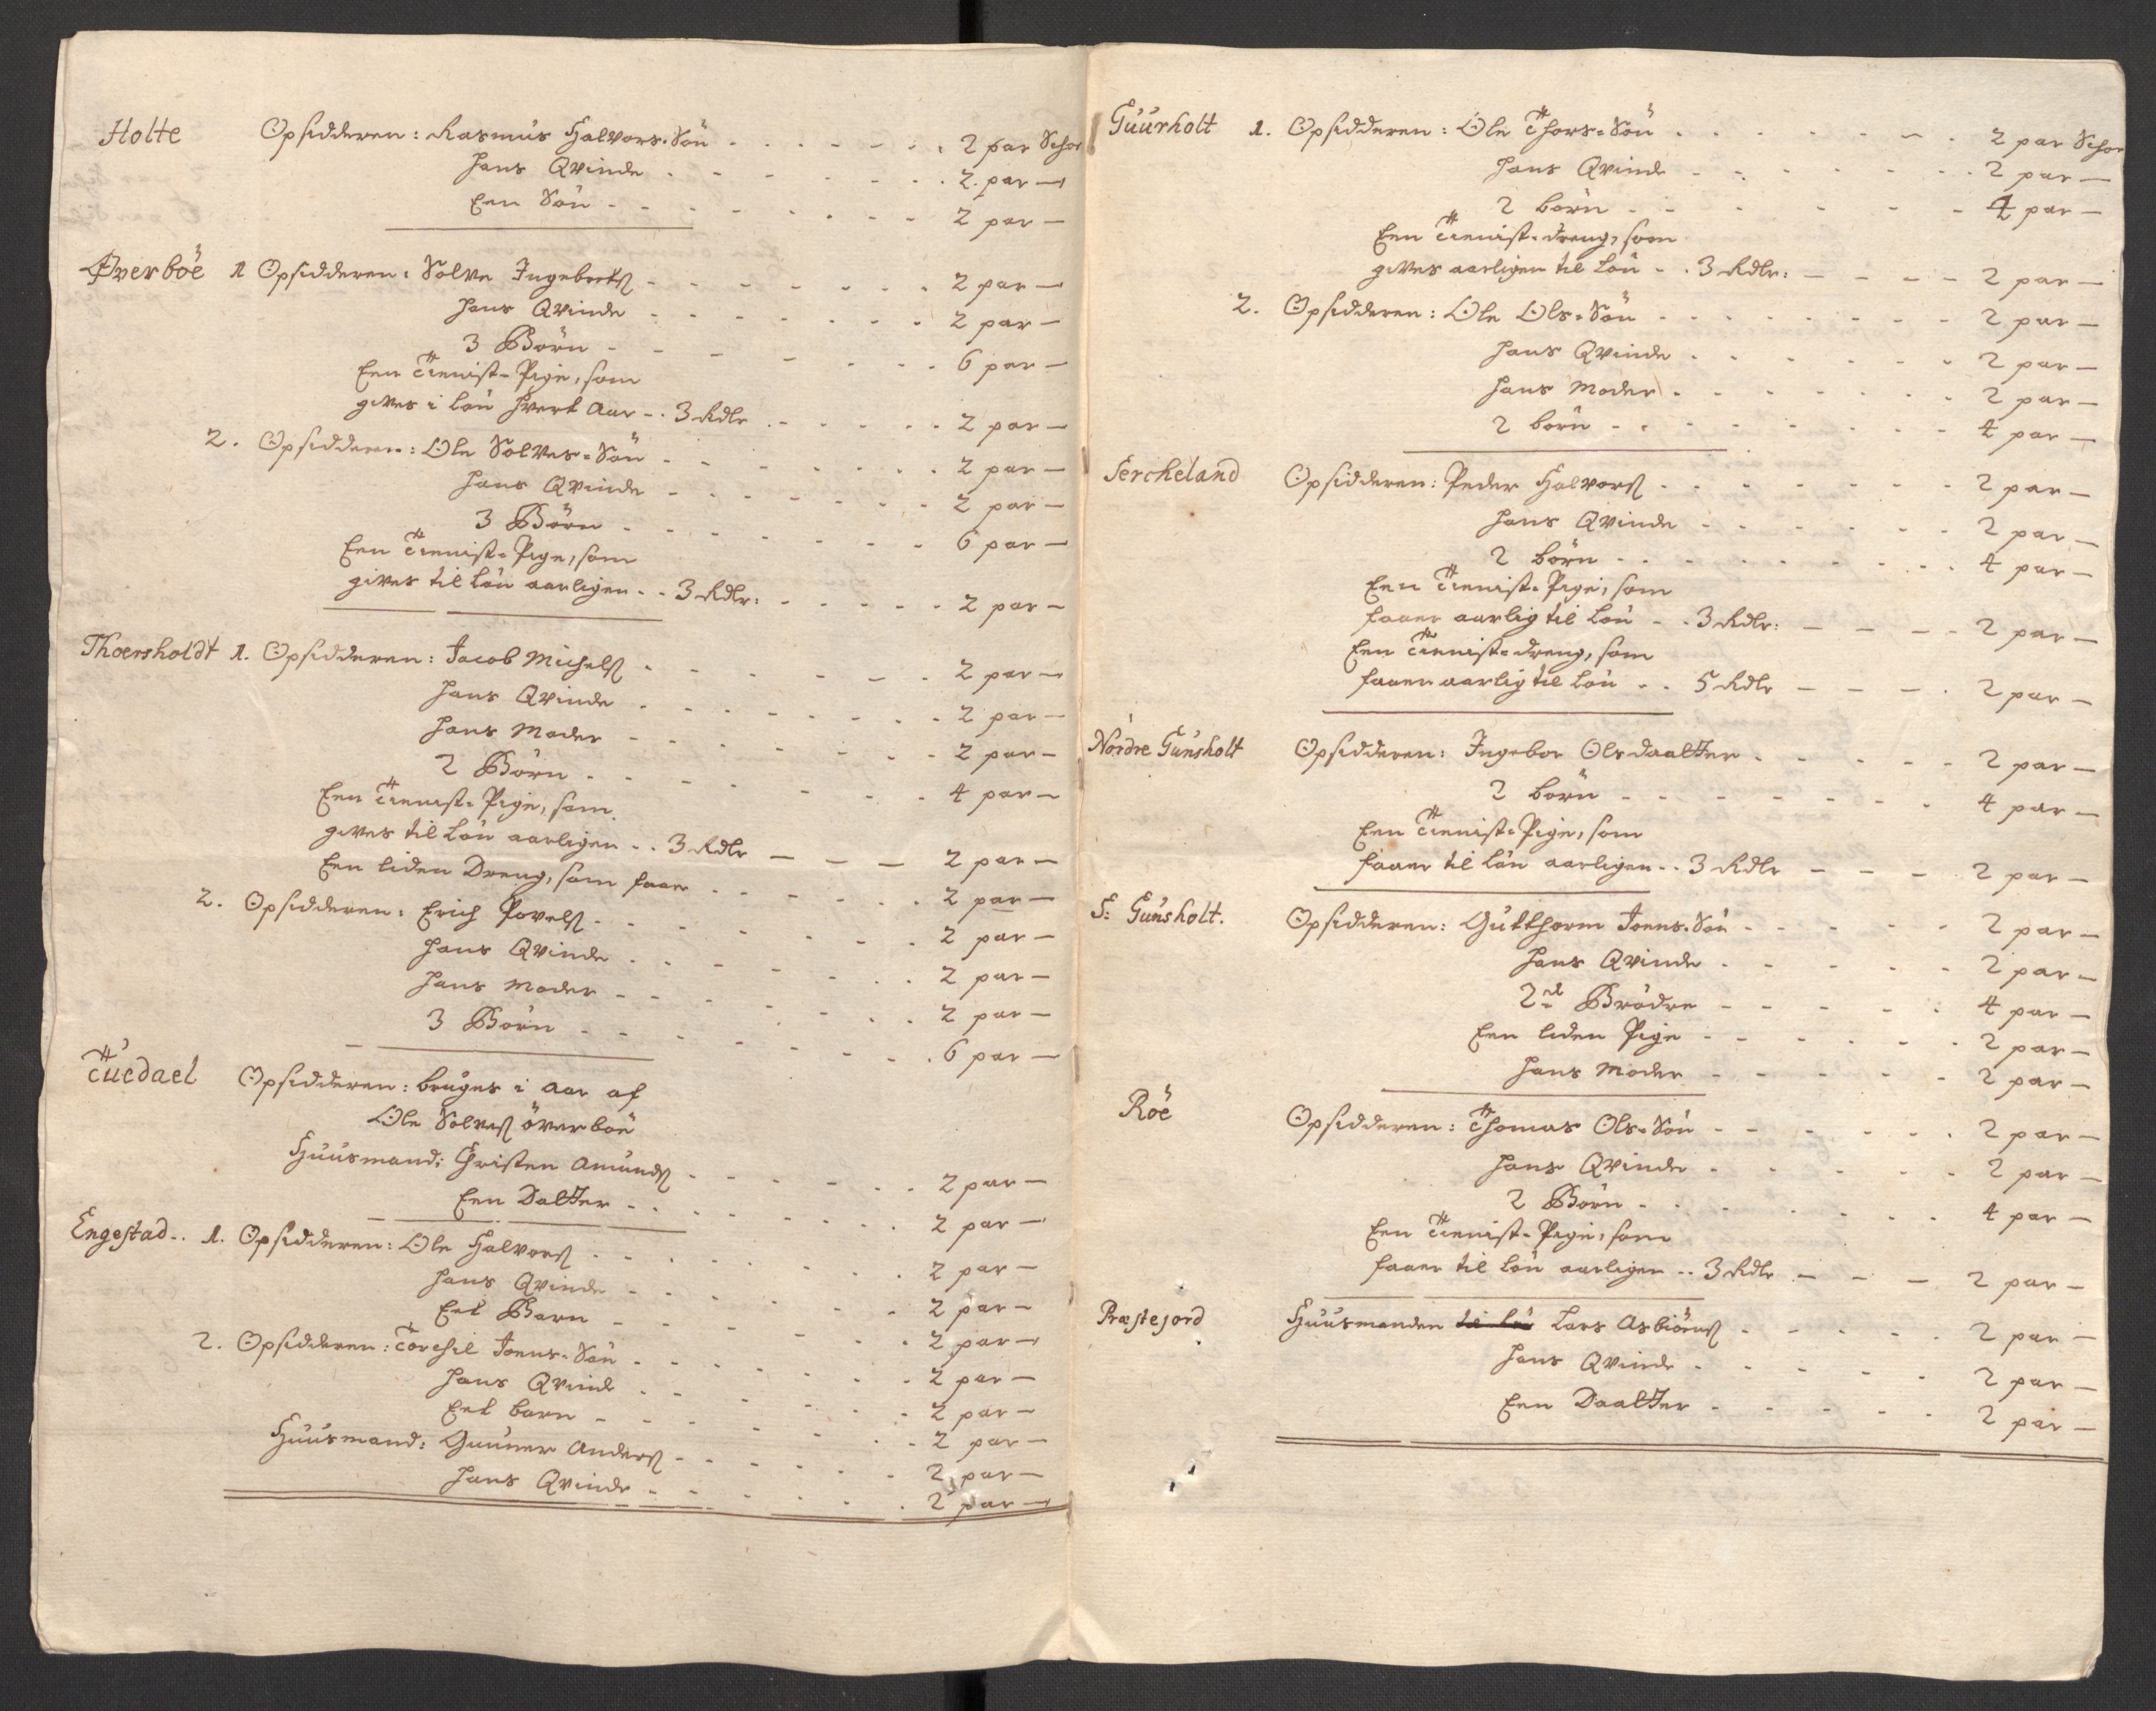 Holte Opsidderen: Rasmus Halvors-Søn - - - - - - 2 par Schoe
Hans Qvinde - - - - - - - 2. par —
Een Søn - - - - - - - - 2 par —
Øverböe 1 Opsidderen: Solve Ingebrets - - - - - - - 2 par —
Hans Qvinde - - - - - - - 2 par —
3 Börn - - - - - - - 6 par —
Een Tienist-Pige, som
gives i Lön hvert Aar - . 3 Rdlr - - - - - 2 par —
2. Opsidderen: Ole Solves-Sön - - - - - - - 2 par —
Hans Qvinde - - - - - - - 2 par —
3 Börn - - - - - - - 6 par —
Een Tienist-Pige, som
gives til Lön aarligen - - 3 Rdlr: - - - - - 2 par —
Thoersholdt 1. Opsidderen: Jacob Michels - - - - - - 2 par —
Hans Qvinde - - - - - - - - 2 par —
Hans Moder - - - - - - - 2 par —
2 Börn - - - - - - - 4 par —
Een Tienist-Pige, som
gives til Lön aarligen - . 3 Rdlr — — — 2 par —
Een liden Dreng, som faaer - - - - - - 2 par —
2. Opsidderen: Erich Povels - - - - - - - 2 par —
Hans Qvinde - - - - - - - 2 par —
Hans Moder - - - - - - - 2 par —
3 Börn - - - - - - - - 6 par —
Tuedael Opsidderen: bruges i Aar af
Ole Solves överböe
Huusmand: Christen Amunds - - - - - - 2 par —
Een Daatter - - - - - - - - 2 par —
Engestad - . 1. Opsidderen: Ole Halvors - - - - - - - 2 par —
Hans Qvinde - - - - - - - 2 par —
Eet Barn - - - - - - - 2 par —
2. Opsidderen: Torchil Joens-Sön - - - - - - 2 par —
Hans Qvinde - - - - - - - 2 par —
Eet barn - - - - - - - 2 par —
Huusmand: Gunner Anders - - - - - - 2 par —
Hans Qvinde - - - - - - - 2 par —
Guurholt 1. Opsidderen: Ole Thors-Sön - - - - - - - 2 par Schoe
Hans Qvinde - - - - - - - 2 par —
2 börn - - - - - - 4 par —
Een Tienist-dreng, som
gives aarligen til Lön - . 3 Rdlr: — — — — 2 par —
2. Opsidderen: Ole Ols-Sön - - - - - - - - 2 par —
Hans Qvinde - - - - - - - 2 par —
Hans Moder - - - - - - - 2 par —
2 börn - - - - - - - - 4 par —
Fercheland Opsidderen: Peder Halvors - - - - - - - 2 par —
Hans Qvinde - - - - - - - 2 par —
2 börn - - - - - - - - 4 par —
Een Tienist-Pige, som
faaer aarlig til Lön - . 3 Rdlr: — — — — 2 par —
Een Tienist-dreng, som
faaer aarlig til Lön - . 5 Rdlr — — — - 2 par —
Nordre Gunsholt Opsidderen: Ingebor Olsdaatter - - - - - 2 par —
2 börn - - - - - - - 4 par —
Een Tienist-Pige, som
faaer til Lön aarligen - . 3 Rdlr — — — 2 par —
S: Gunsholt. Opsidderen: Gutthorm Joens-Sön - - - - - 2 par —
Hans Qvinde - - - - - 2 par —
2de Brödre - - - - - 4 par —
Een liden Pige - - - - - - 2 par —
Hans Moder - - - - - 2 par —
Röe Opsidderen: Thomas Ols-Sön - - - - - - 2 par —
Hans Qvinde - - - - - - 2 par —
2 Börn - - - - - - - 4 par —
Een Tienist-Pige, som
faaer til Lön aarligen - . 3 Rdlr — — — 2 par —
Præstejord Huusmanden til Lön Lars Asbiörns - - - - - 2 par —
Hans Qvinde - - - - - 2 par —
Een Daatter - - - - - 2 par —